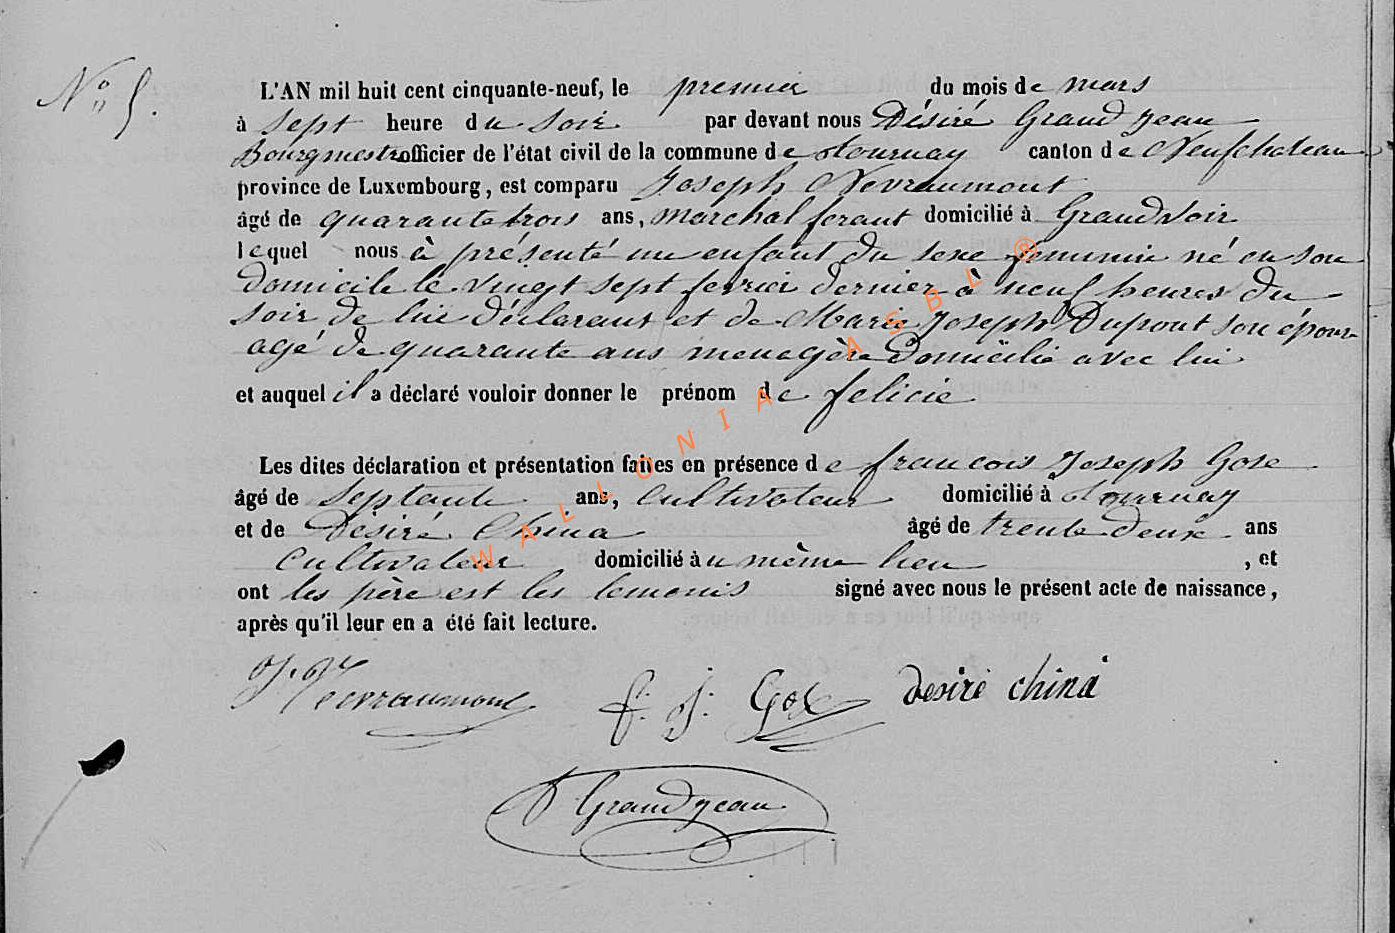 N° 5.
L'AN mil huit cent cinquante-neuf, le premier du mois de mars
à sept heure du soir par devant nous Désiré Grandjean
Bourgmestre officier de l'état civil de la commune de tournay canton de Neufchateau
province de Luxembourg, est comparu Joseph Nevraumont
âgé de quarante trois ans, marchal ferant domicilié à Grandvoir
lequel nous à présenté un enfant du sexe féminin né en son
domicile le vingt sept fevrier dernier à neuf heures du
soir de lui déclarant et de Marie Joseph Dupont son épouse
agé de quarante ans menagère domicilié avec lui
et auquel il a déclaré vouloir donner le prénom de felicie
Les dites déclaration et présentation faites en présence de francois Joseph Gose
âgé de septante ans, cultivateur domicilié à tournay
et de Desiré China âgé de trente deux ans
cultivateur domicilié à u même lieu , et
ont les père est les temonis signé avec nous le présent acte de naissance,
après qu'il leur en a été fait lecture.
J. Nevraumont f: J: Gose desiré china
D Grandjean
WALLONIA ASBL ®